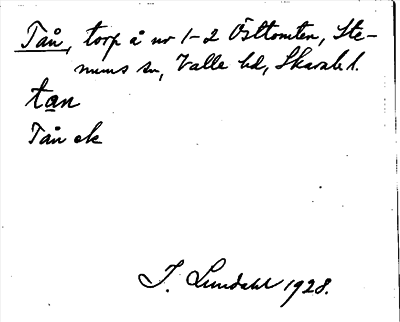 Tån, torp å nr 1-2 Östtomten, Ste-
nums sn, Valle hd, Skarab. l.
tan
Tån ek
I. Lundahl 1928.